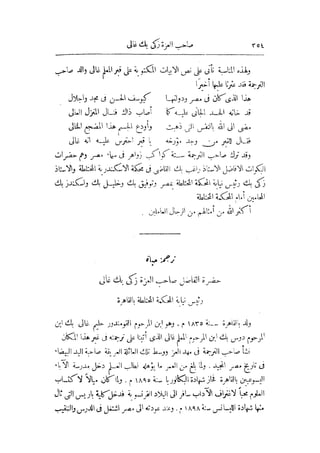 ٢٥٤ صاحب العزة زكى بك غالى
ولهذه المناسبة نأتى على نص الابيات المكتوبة على قبر المعلم غالى والد صاحب
الترجمة فقد عثرنا عليها أخيرا
هذا الذى كان فى مصر ودولتها كيوسف الحسن فى مجد واجلال
قد خانه الحسد الجانى عليه كما أصاب ذاك فنال المنزل العالى
مضى الى الله بالنفس التى ذهبت وأودع الجسم هذا المضجع الخالى
فنال القبر من وجد مؤرخه يا قبر احترس عليه انه غالى
وقد ترك صاحب الترجمة ستة كواكب زواهر فى سماء مصر وهم حضرات
البكوات الافاضل الاستاذ راغب بك القاضى فى محكمة الاسكندرية المختلطة والاستاذ
زكى بك رئيس نيابة المحكمة المختلطة بمصر وتوفيق بك وخليل بك واسكندر بك
المحامين أمام المحكمة المختلطة
أكثر الله من أمثالهم من الرجال العاملين
ترجمة حياة
حضرة الفاضل صاحب العزة زكى بك غالى
رئيس نيابة المحكمة المختلطة بالقاهرة
ولد بالقاهرة سنة ١٨٣٥ م. وهو ابن المرحوم القومندور حليم غالى بك ابن
المرحوم دوس بك ابن المرحوم المعلم غالى الذى أتينا على ترجمته فى غير هذا المكان
نشأ صاحب الترجمة فى مهد العز ووسط تلك العائلة العريقة صاحبة اليد البيضاء
فى تاريخ مصر المجيد. ولما بلغ من العمر ما يؤهله لطلب العلم دخل مدرسة الآباء
اليسوعيين بالقاهرة فحاز شهادة البكالوريا سنة ١٨٩٥ م. ولما كان ميالا لاكتساب
العلوم محبا لاغتراف الآداب سافر الى البلاد الفرنسوية فدخل كلية باريس التى نال
منها شهادة الليسانس سنة ١٨٩٨ م. وعند عودته الى مصر اشتغل فى الدرس والتنقيب